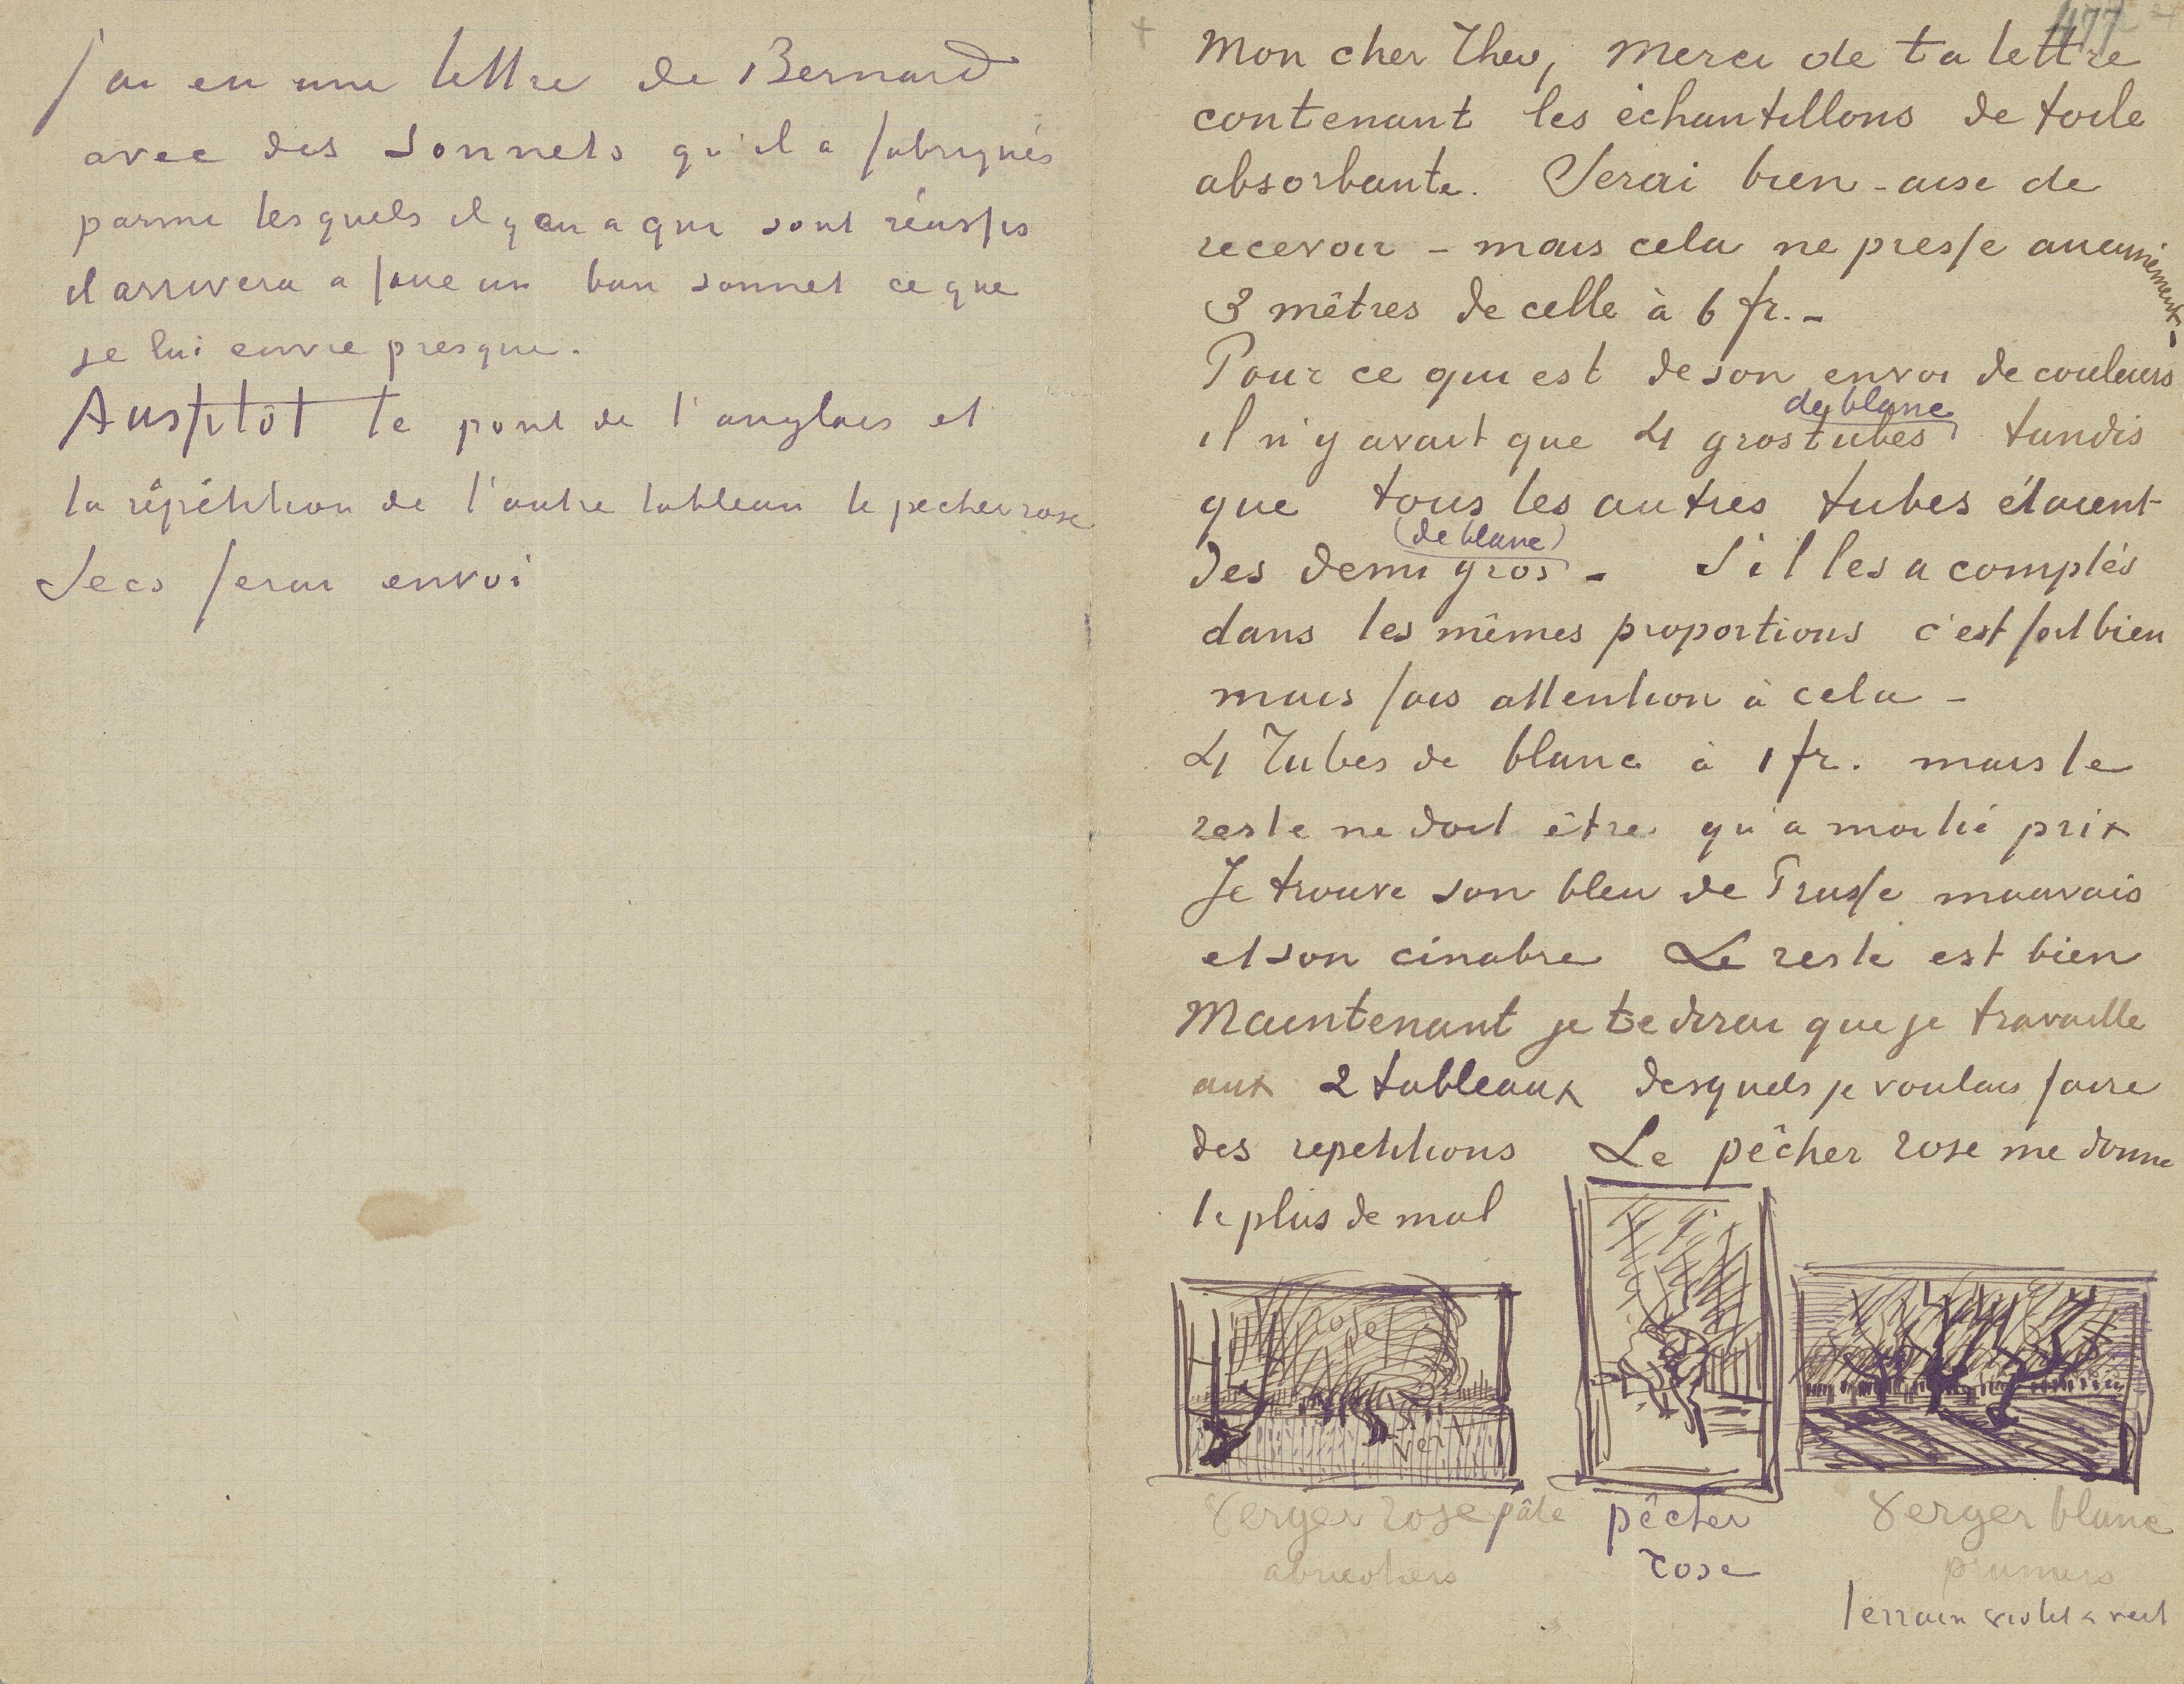 J'ai eu une lettre de Bernard
avec des sonnets qu'il a fabriqués
parmi lesquels il y en a qui sont réussis
il arrivera a faire un bon sonnet ce que
je lui envie presque.
Aussitôt le pont de l'anglais et
la répétition de l'autre tableau le pecher rose
Secs ferai envoi
477
Mon cher Theo, Merci de ta lettre
contenant les échantillons de toile
absorbante. Serai bien-aise de
recevoir – mais cela ne presse aucunément.
3 mêtres de celle à 6 fr. –
Pour ce qui est de son envoi de couleurs
de blanc
il n'y avait que 4 gros tubes tandis
que tous les autres tubes étaient
(de blanc)
des demi gros – S'il les a comptés
dans les mêmes proportions c'est fort bien
mais fais attention à cela –
4 Tubes de blanc à 1 fr. mais le
reste ne doit être qu'a moitié prix
Je trouve son bleu de Prusse mauvais
et son cinabre Le reste est bien
Maintenant je te dirai que je travaille
aux 2 tableaux desquels je voulais faire
des repetitions Le pêcher rose me donne
le plus de mal
rose
vert
Verger rose pâle
abricotiers
pêcher
rose
Verger blanc
pruniers
terrain violet & vert